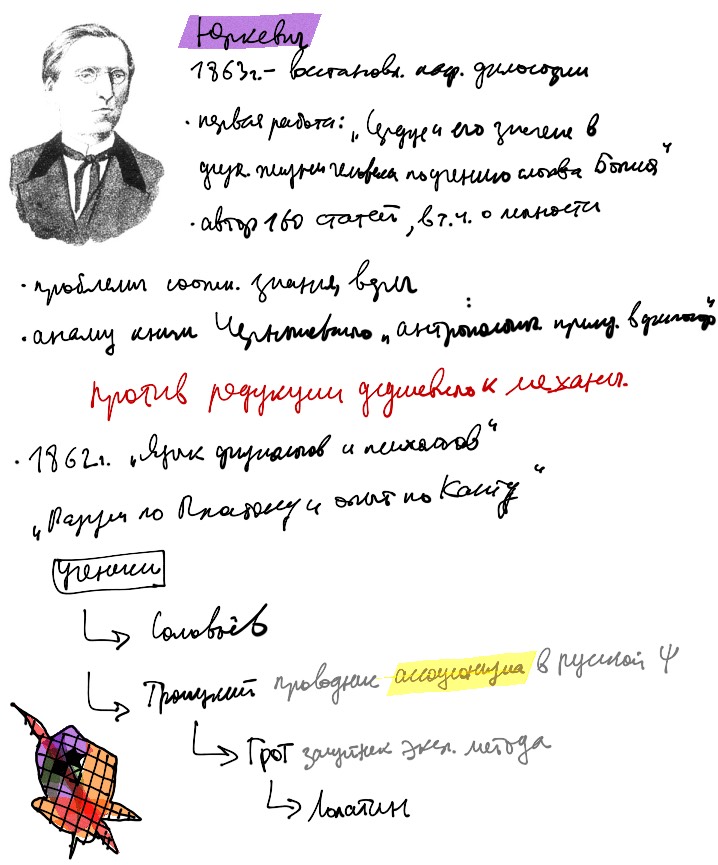 Юркевич
1863г. – восстановл. каф. философии
· первая работа: „Сердце и его значение в
дух. жизни человека по учению слова Божия“
· автор 160 статей, в т.ч. о личности
· проблемы соотн. знания, веры
· анализ книги Чернышевского „антропологич. принц. в философ“
против редукции душевного к механич.
· 1862г. „Язык физиологов и психологов“
„Разум по Платону и опыт по Канту“
ученики
Соловьёв
Троицкий проводник ассоцианизма в русской Ψ
Грот защитник эксп. метода
Лопатин